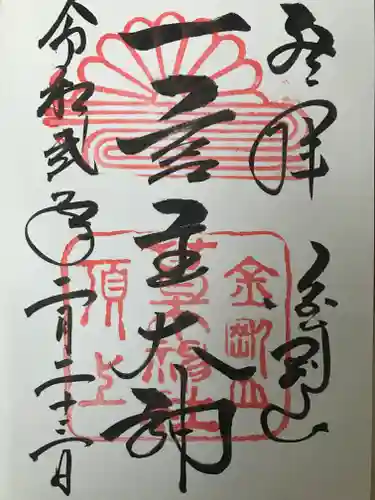 登拝
金剛山
一言主大神
令和弐年二月二十三日
金剛山
葛木神社
頂上